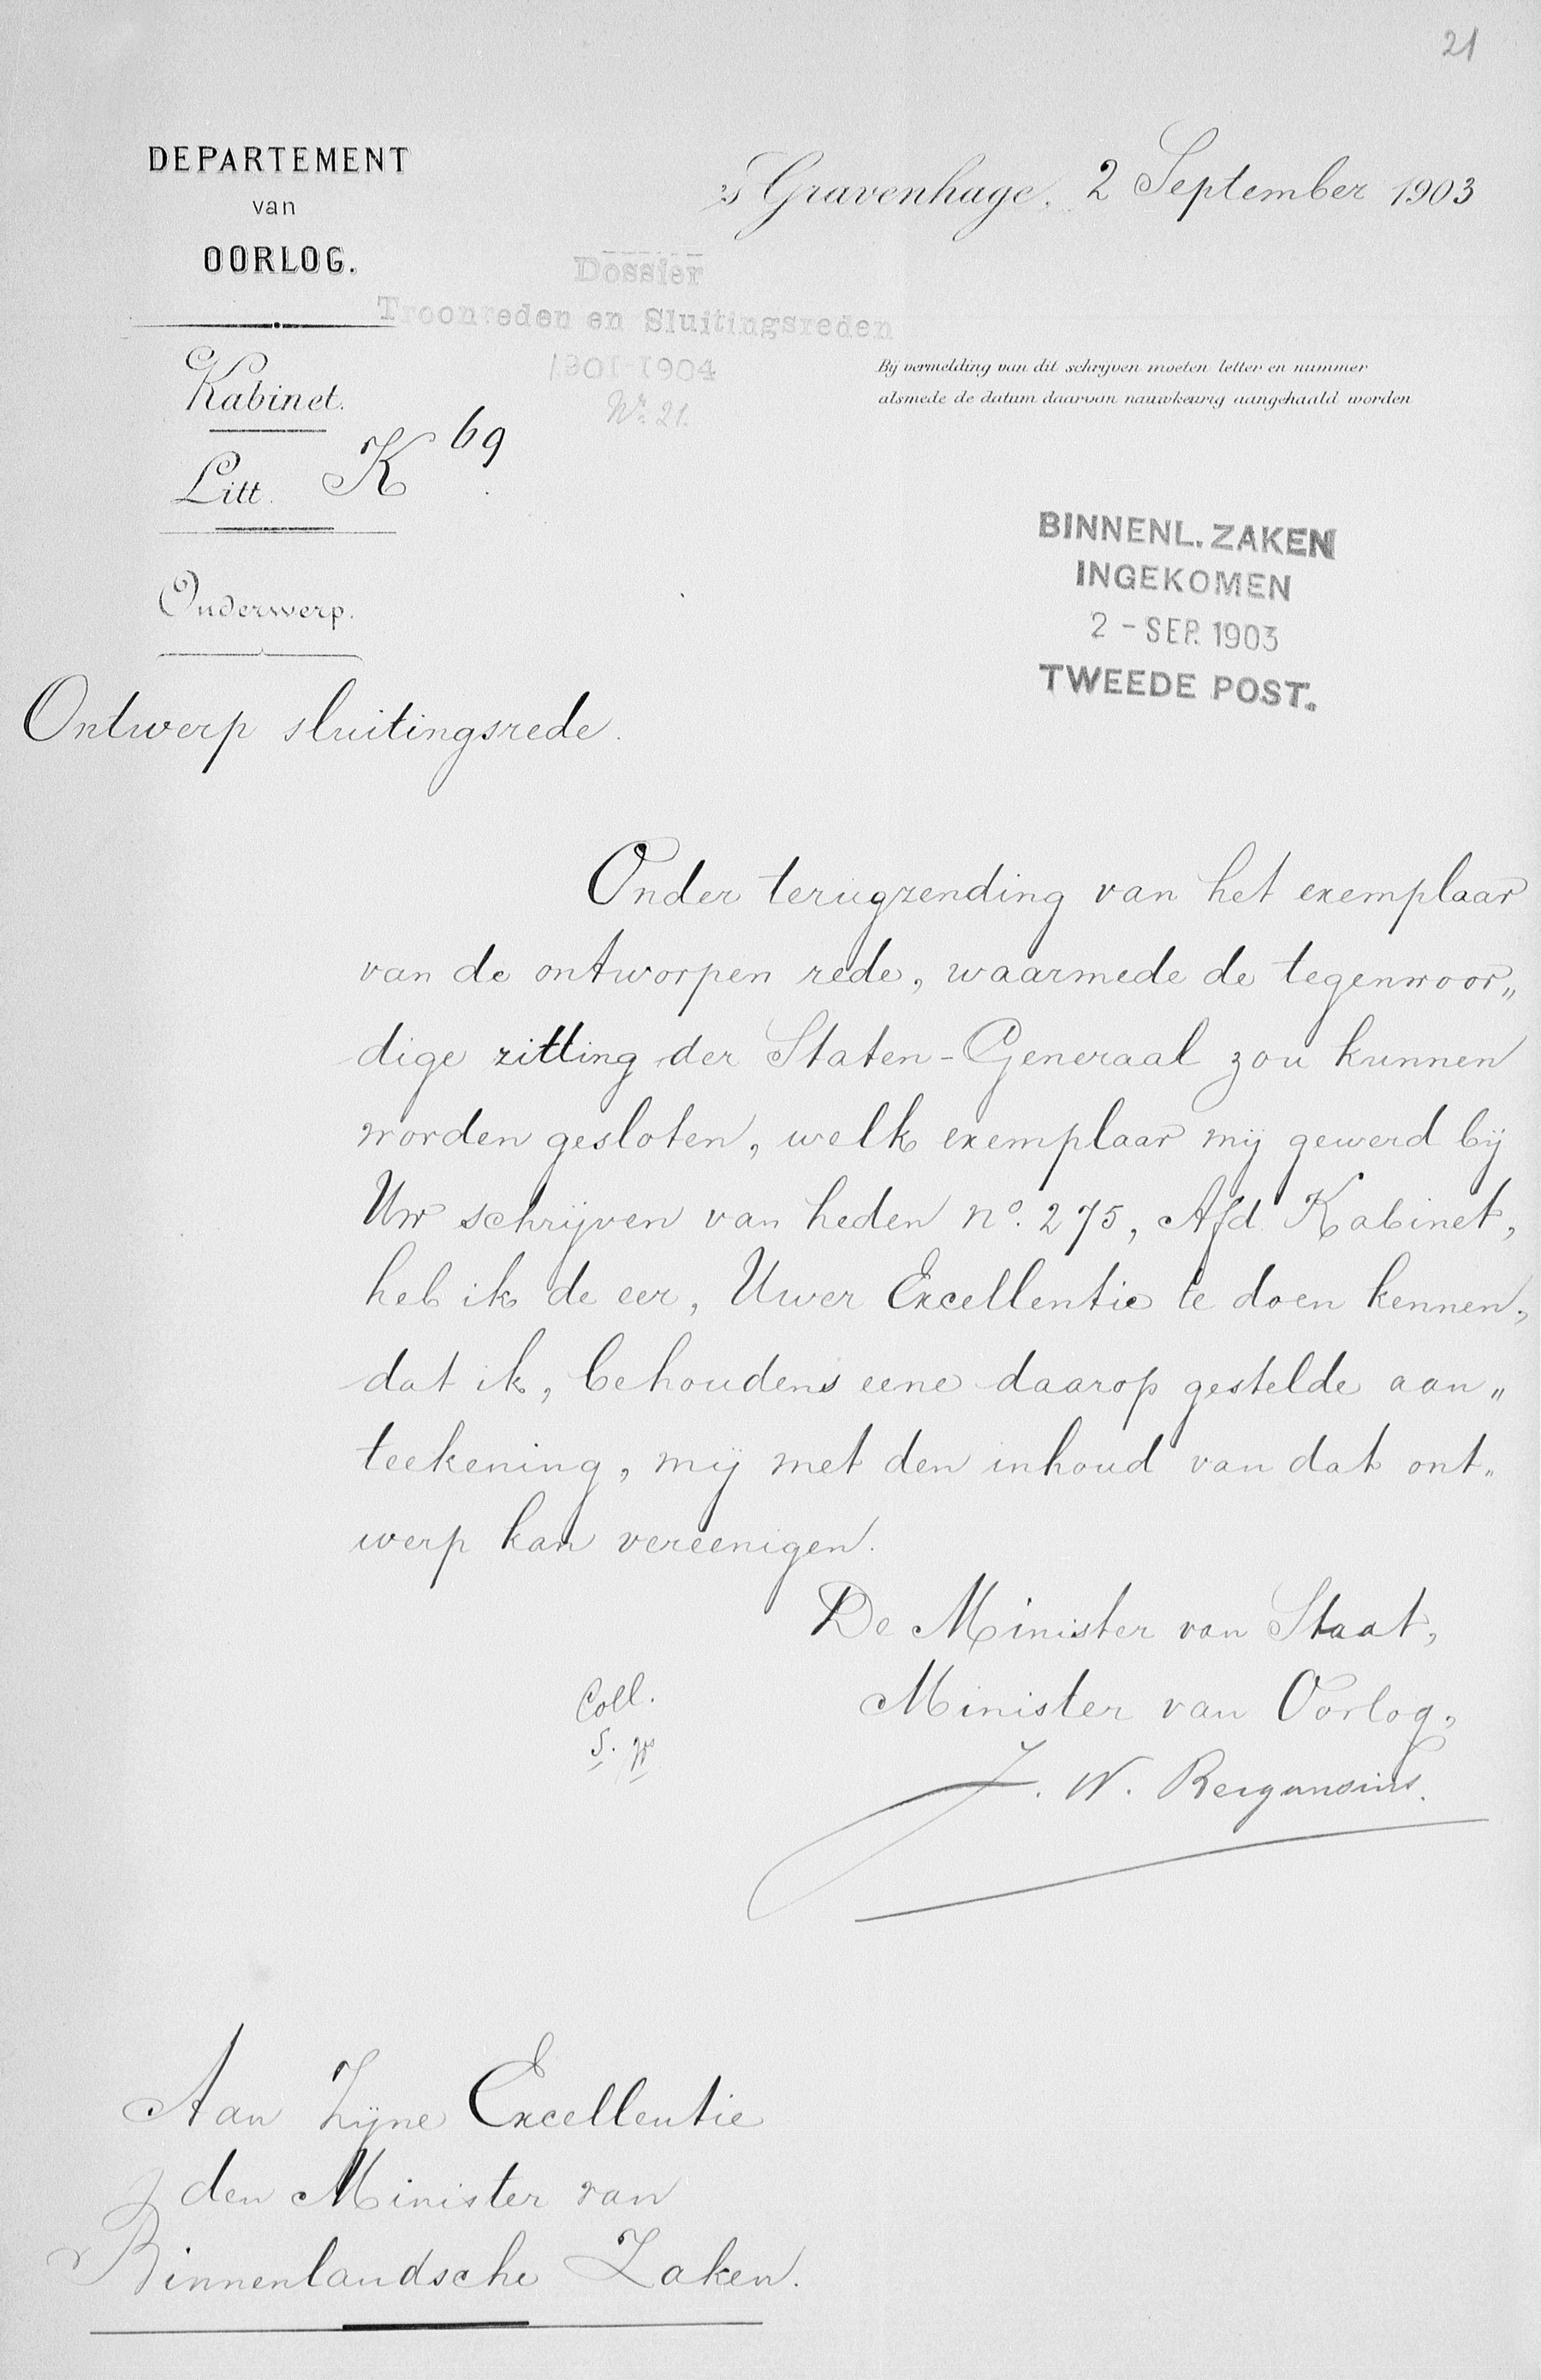 21
DEPARTEMENT
van
OORLOG.
's Gravenhage, 2 September 1903
Dossier
Troonreden en Sluitingsreden
1901-1904
Nr. 21.
Kabinet.
Litt. K 69
Bij vermelding van dit schrijven moeten letter en nummer
alsmede de datum daarvan nauwkeurig aangehaald worden
BINNENL. ZAKEN
INGEKOMEN
2 - SEP. 1903
TWEEDE POST.
Onderwerp.
Ontwerp sluitingsrede.
Onder terugzending van het exemplaar
van de ontworpen rede, waarmede de tegenwoor„
dige zitting der Staten-Generaal zou kunnen
worden gesloten, welk exemplaar mij gewerd bij
Uw schrijven van heden no. 275, Afd. Kabinet,
heb ik de eer, Uwer Excellentie te doen kennen,
dat ik, behoudens eene daarop gestelde aan„
teekening, mij met den inhoud van dat ont„
werp kan vereenigen.
De Minister van Staat,
Minister van Oorlog,
J. W. Bergansius.
Coll.
Aan Zijne Excellentie
den Minister van
Binnenlandsche Zaken.